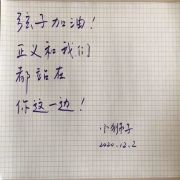 弦子加油！
正义和我们
都站在
你这一边！
小狮子
2020.12.2